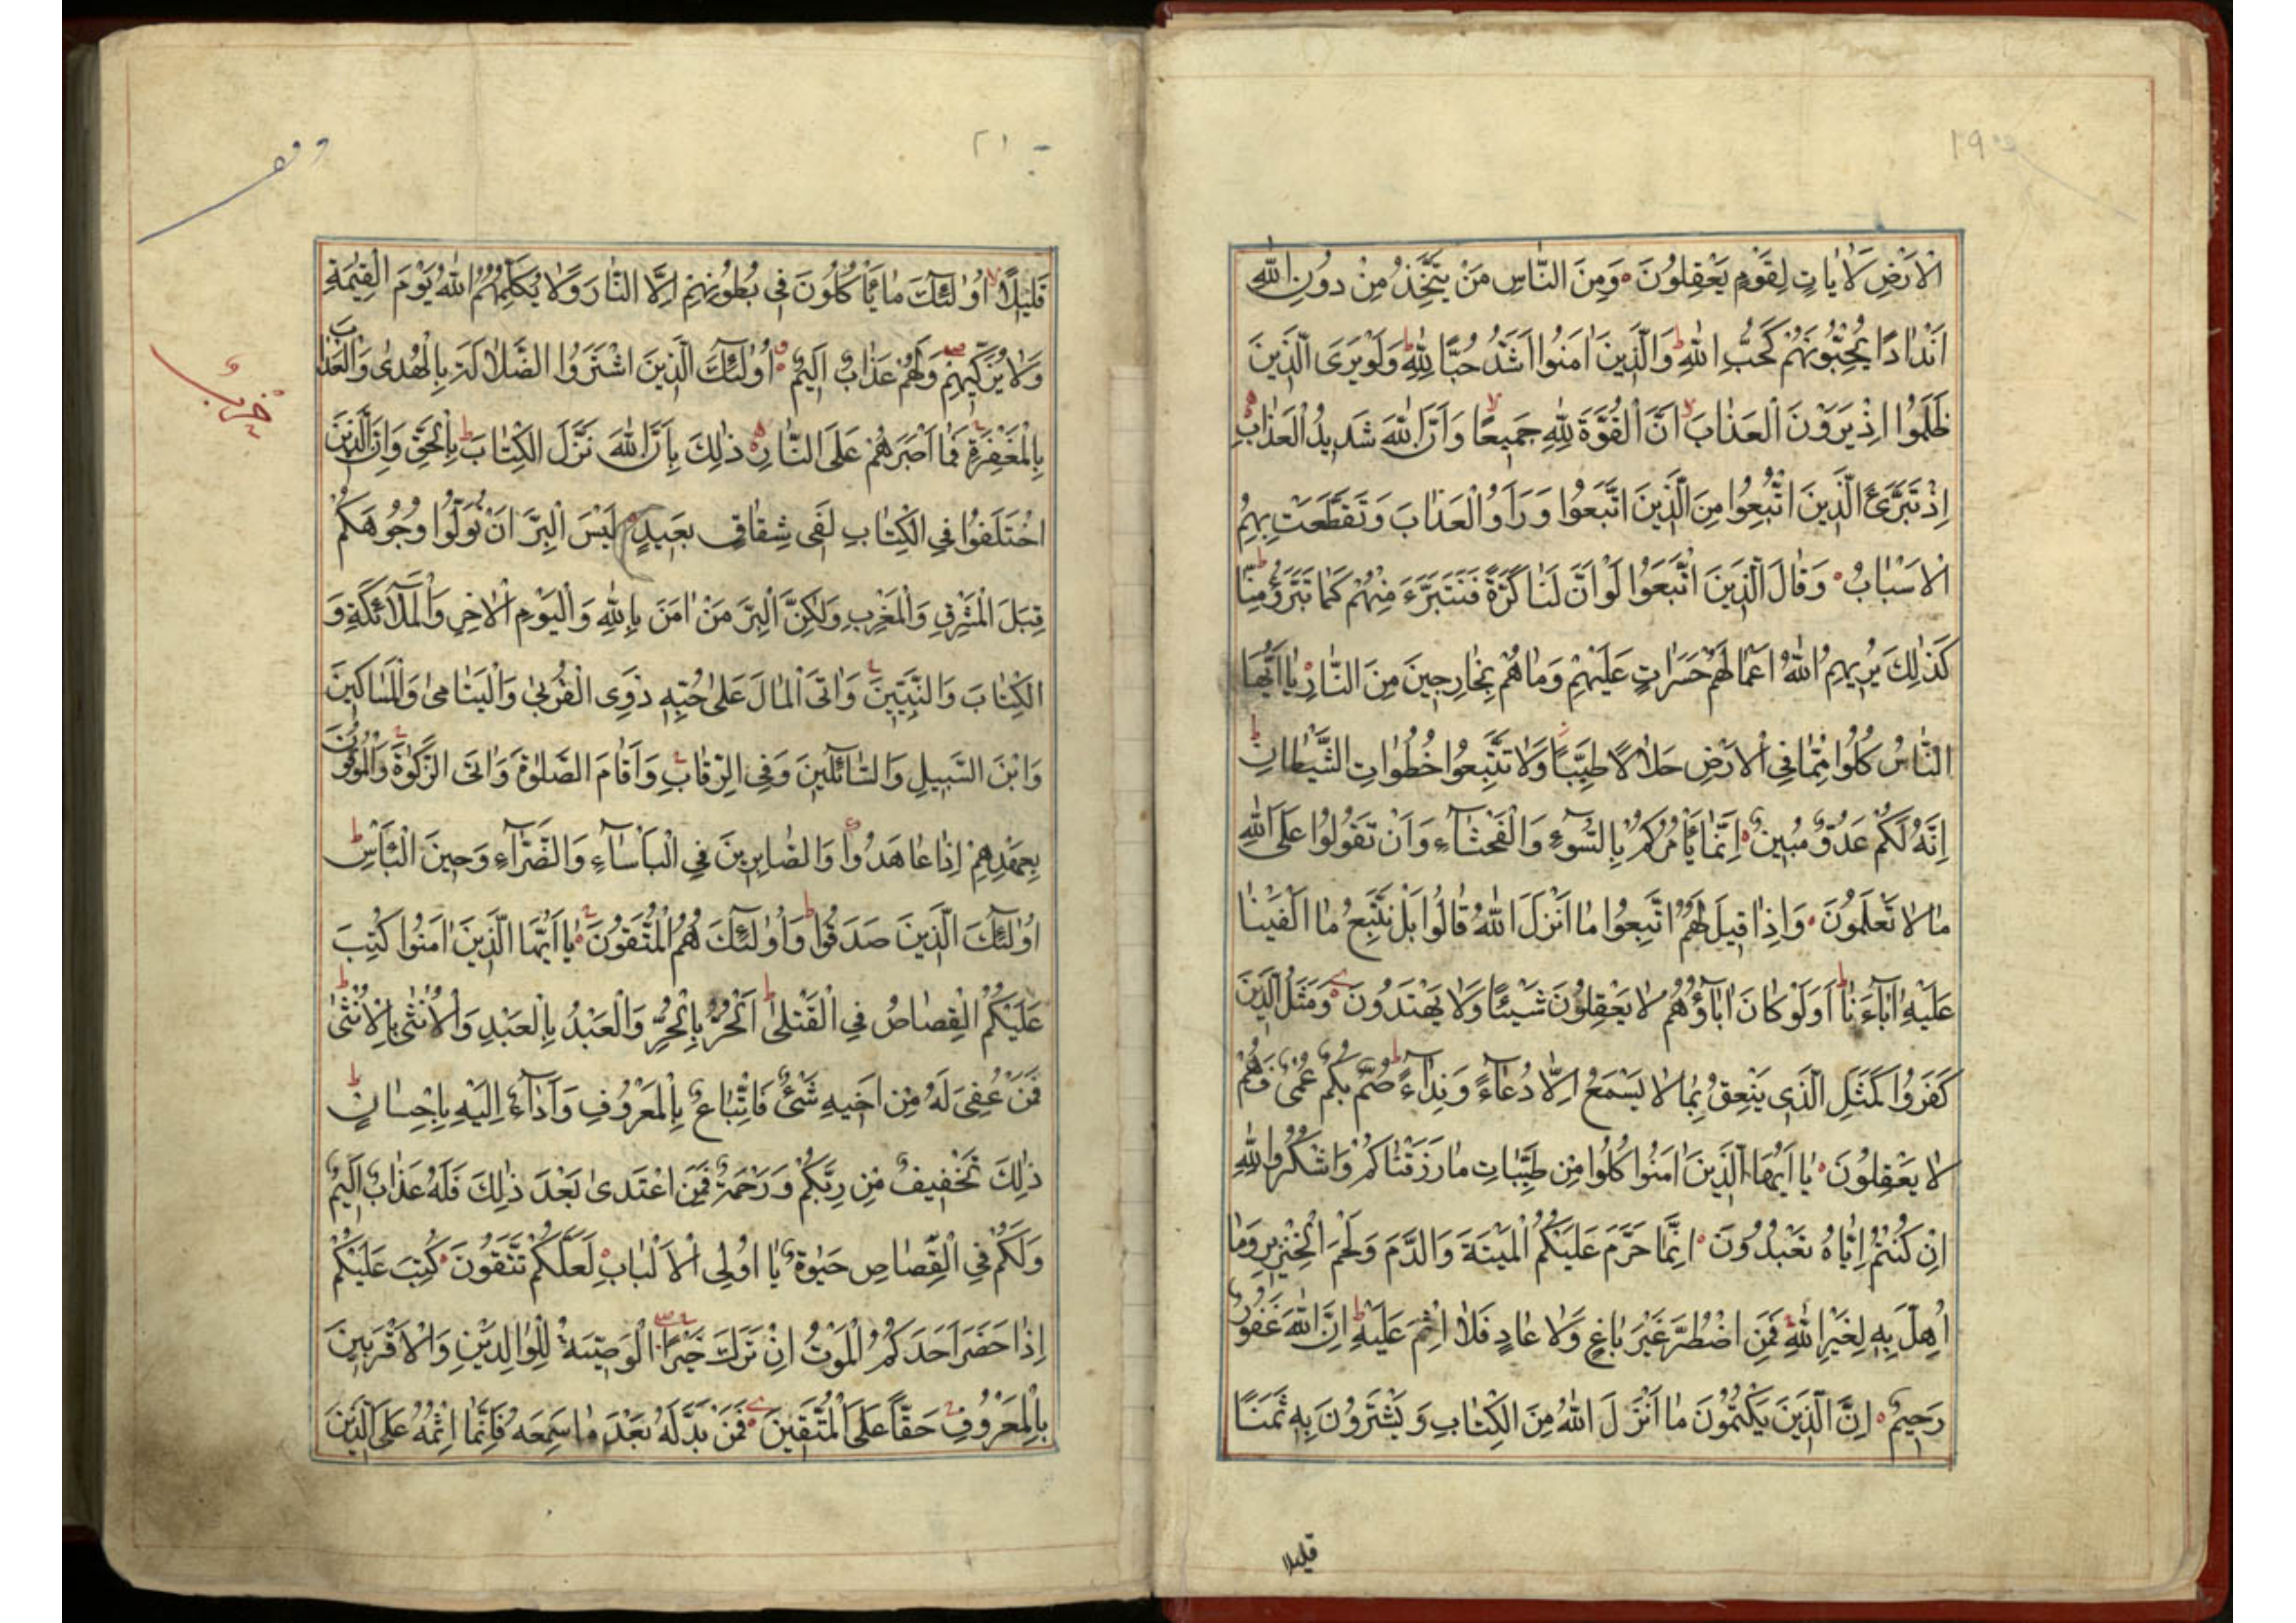 ١٩
الْاَرْضِ لَاٰيٰاتٍ لِقَوْمٍ يَعْقِلُونَ وَمِنَ النّٰاسِ مَنْ يَتَّخِذُ مِنْ دُونِ اللّٰهِ
اَنْدٰادًا يُحِبُّونَهُمْ كَحُبِّ اللّٰهِ ط وَالَّذِينَ اٰمَنُوا اَشَدُّ حُبًّا لِلّٰهِ ط وَلَوْ يَرَى الَّذِينَ
ظَلَمُوا اِذْ يَرَوْنَ الْعَذٰابَ لا اَنَّ الْقُوَّةَ لِلّٰهِ جَمِيعًا لا وَاَنَّ اللّٰهَ شَدِيدُ الْعَذٰابِ
اِذْ تَبَرَّئَ الَّذِينَ اتُّبِعُوا مِنَ الَّذِينَ اتَّبَعُوا وَرَاَوُ الْعَذٰابَ وَتَقَطَّعَتْ بِهِمُ
الْاَسْبٰابُ وَقٰالَ الَّذِينَ اتَّبَعُوا لَوْ اَنَّ لَنٰا كَرَّةً فَنَتَبَرَّءَ مِنْهُمْ كَمٰا تَبَرَّؤُ مِنّٰا ط
كَذٰلِكَ يُرِيهِمُ اللّٰهُ اَعْمٰالَهُمْ حَسَرٰاتٍ عَلَيْهِمْ وَمٰا هُمْ بِخٰارِجِينَ مِنَ النّٰارِ يٰا اَيُّهَا
النّٰاسُ كُلُوا مِمّٰا فِي الْاَرْضِ حَلٰالًا طَيِّبًا وَلٰا تَتَّبِعُوا خُطُوٰاتِ الشَّيْطٰانِ ط
اِنَّهُ لَكُمْ عَدُوٌّ مُبِينٌ اِنَّمٰا يَأْمُرُكُمْ بِالسُّوٓءِ وَالْفَحْشٰٓاءِ وَاَنْ تَقُولُوا عَلَى اللّٰهِ
مٰا لٰا تَعْلَمُونَ وَاِذٰا قِيلَ لَهُمُ اتَّبِعُوا مٰا اَنْزَلَ اللّٰهُ قٰالُوا بَلْ نَتَّبِعُ مٰا اَلْفَيْنٰا
عَلَيْهِ اٰبٰٓاءَنٰا ط اَوَلَوْ كٰانَ اٰبٰٓاؤُهُمْ لٰا يَعْقِلُونَ شَيْئًا وَلٰا يَهْتَدُونَ وَمَثَلُ الَّذِينَ
كَفَرُوا كَمَثَلِ الَّذِي يَنْعِقُ بِمٰا لٰا يَسْمَعُ اِلّٰا دُعٰٓاءً وَنِدٰٓاءً ط صُمٌّ بُكْمٌ عُمْيٌ فَهُمْ
لٰا يَعْقِلُونَ يٰا اَيُّهَا الَّذِينَ اٰمَنُوا كُلُوا مِنْ طَيِّبٰاتِ مٰا رَزَقْنٰاكُمْ وَاشْكُرُوا لِلّٰهِ
اِنْ كُنْتُمْ اِيّٰاهُ تَعْبُدُونَ اِنَّمٰا حَرَّمَ عَلَيْكُمُ الْمَيْتَةَ وَالدَّمَ وَلَحْمَ الْخِنْزِيرِ وَمٰا
اُهِلَّ بِهِ لِغَيْرِ اللّٰهِ فَمَنِ اضْطُرَّ غَيْرَ بٰاغٍ وَلٰا عٰادٍ فَلٰا اِثْمَ عَلَيْهِ ط اِنَّ اللّٰهَ غَفُورٌ
رَحِيمٌ اِنَّ الَّذِينَ يَكْتُمُونَ مٰا اَنْزَلَ اللّٰهُ مِنَ الْكِتٰابِ وَيَشْتَرُونَ بِهِ ثَمَنًا
قليلا
٢١
قَلِيلًا لا اُولٰٓئِكَ مٰا يَأْكُلُونَ فِي بُطُونِهِمْ اِلَّا النّٰارَ وَلٰا يُكَلِّمُهُمُ اللّٰهُ يَوْمَ الْقِيٰمَةِ
وَلٰا يُزَكِّيهِمْ وَلَهُمْ عَذٰابٌ اَلِيمٌ اُولٰٓئِكَ الَّذِينَ اشْتَرَوُا الضَّلٰالَةَ بِالْهُدٰى وَالْعَذٰابَ
بِالْمَغْفِرَةِ فَمٰا اَصْبَرَهُمْ عَلَى النّٰارِ ذٰلِكَ بِاَنَّ اللّٰهَ نَزَّلَ الْكِتٰابَ بِالْحَقِّ ط وَاِنَّ الَّذِينَ
اخْتَلَفُوا فِي الْكِتٰابِ لَفِي شِقٰاقٍ بَعِيدٍ لَيْسَ الْبِرَّ اَنْ تُوَلُّوا وُجُوهَكُمْ
قِبَلَ الْمَشْرِقِ وَالْمَغْرِبِ وَلٰكِنَّ الْبِرَّ مَنْ اٰمَنَ بِاللّٰهِ وَالْيَوْمِ الْاٰخِرِ وَالْمَلٰٓائِكَةِ وَ
الْكِتٰابَ وَالنَّبِيِّينَ وَاٰتَى الْمٰالَ عَلٰى حُبِّهِ ذَوِي الْقُرْبٰى وَالْيَتٰامٰى وَالْمَسٰاكِينَ
وَابْنَ السَّبِيلِ وَالسّٰٓائِلِينَ وَفِي الرِّقٰابِ وَاَقٰامَ الصَّلٰوةَ وَاٰتَى الزَّكٰوةَ وَالْمُوفُونَ
بِعَهْدِهِمْ اِذٰا عٰاهَدُوا وَالصّٰابِرِينَ فِي الْبَأْسٰٓاءِ وَالضَّرّٰٓاءِ وَحِينَ الْبَأْسِ ط
اُولٰٓئِكَ الَّذِينَ صَدَقُوا ط وَاُولٰٓئِكَ هُمُ الْمُتَّقُونَ يٰا اَيُّهَا الَّذِينَ اٰمَنُوا كُتِبَ
عَلَيْكُمُ الْقِصٰاصُ فِي الْقَتْلٰى ط اَلْحُرُّ بِالْحُرِّ وَالْعَبْدُ بِالْعَبْدِ وَالْاُنْثٰى بِالْاُنْثٰى ط
فَمَنْ عُفِيَ لَهُ مِنْ اَخِيهِ شَيْءٌ فَاتِّبٰاعٌ بِالْمَعْرُوفِ وَاَدٰٓاءٌ اِلَيْهِ بِاِحْسٰانٍ ط
ذٰلِكَ تَخْفِيفٌ مِنْ رَبِّكُمْ وَرَحْمَةٌ فَمَنِ اعْتَدٰى بَعْدَ ذٰلِكَ فَلَهُ عَذٰابٌ اَلِيمٌ
وَلَكُمْ فِي الْقِصٰاصِ حَيٰوةٌ يٰا اُولِي الْاَلْبٰابِ لَعَلَّكُمْ تَتَّقُونَ كُتِبَ عَلَيْكُمْ
اِذٰا حَضَرَ اَحَدَكُمُ الْمَوْتُ اِنْ تَرَكَ خَيْرًا الْوَصِيَّةُ لِلْوٰالِدَيْنِ وَالْاَقْرَبِينَ
بِالْمَعْرُوفِ حَقًّا عَلَى الْمُتَّقِينَ فَمَنْ بَدَّلَهُ بَعْدَ مٰا سَمِعَهُ فَاِنَّمٰا اِثْمُهُ عَلَى الَّذِينَ